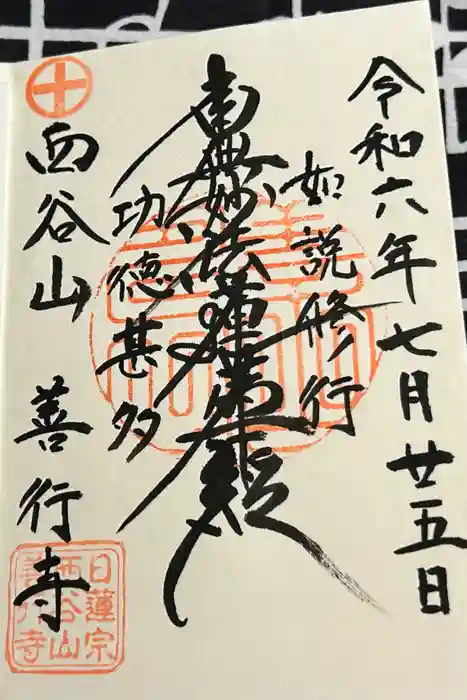 令和六年七月廿五日
如説修行
南無妙法蓮華経
功徳甚多
西谷山 善行寺
日蓮宗
西谷山
善行寺